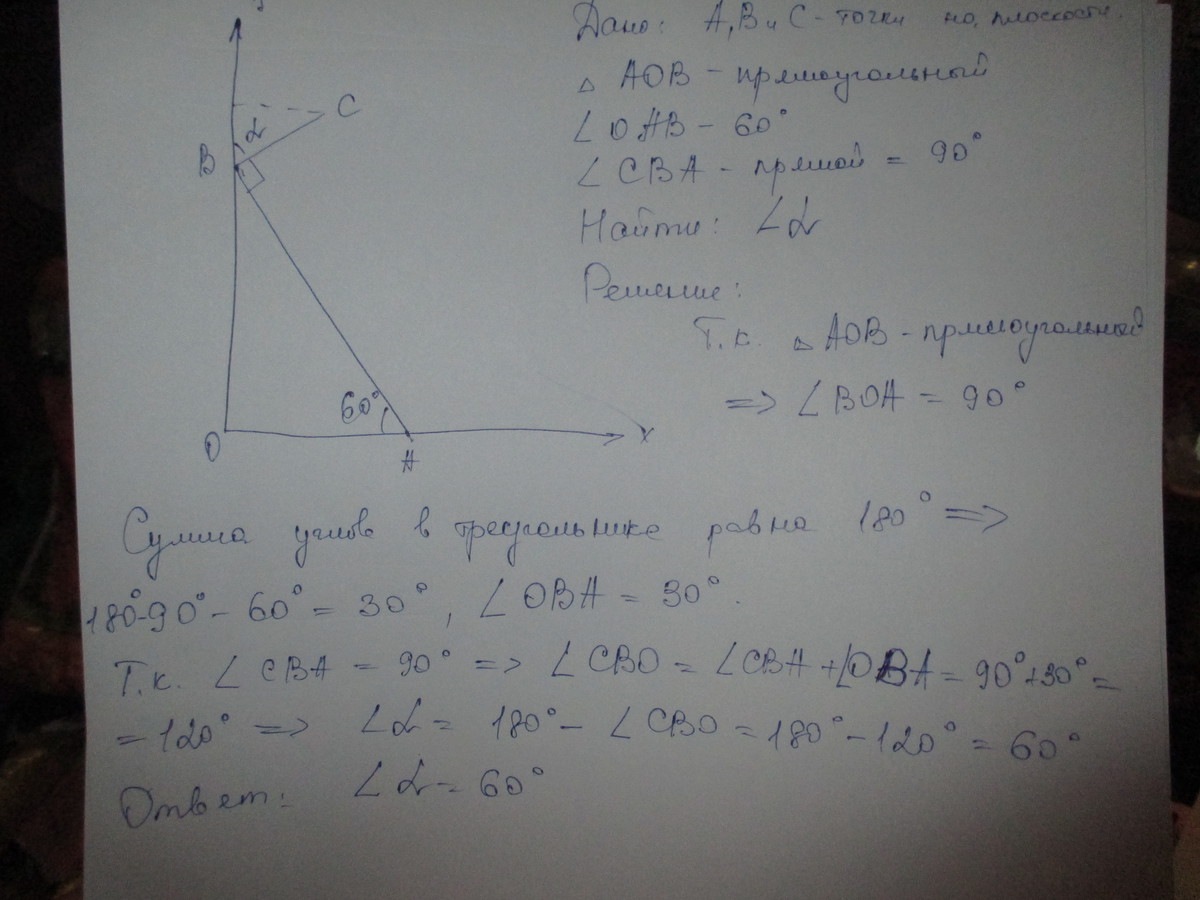 Дано: A, B и C - точки на плоскости.
△ AOB - прямоугольный
∠ OAB - 60°
∠ CBA - прямой = 90°
Найти: ∠α
Решение:
Т.к. △ AOB - прямоугольный
=> ∠ BOA = 90°
B
α
C
60°
O
A
x
Сумма углов в треугольнике равна 180° =>
180°-90°- 60° = 30°, ∠ OBA = 30°.
Т.к. ∠ CBA = 90° => ∠ CBO = ∠CBA +∠OBA = 90°+30° =
= 120° => ∠α = 180° - ∠ CBO = 180° - 120° = 60°
Ответ: ∠ α = 60°